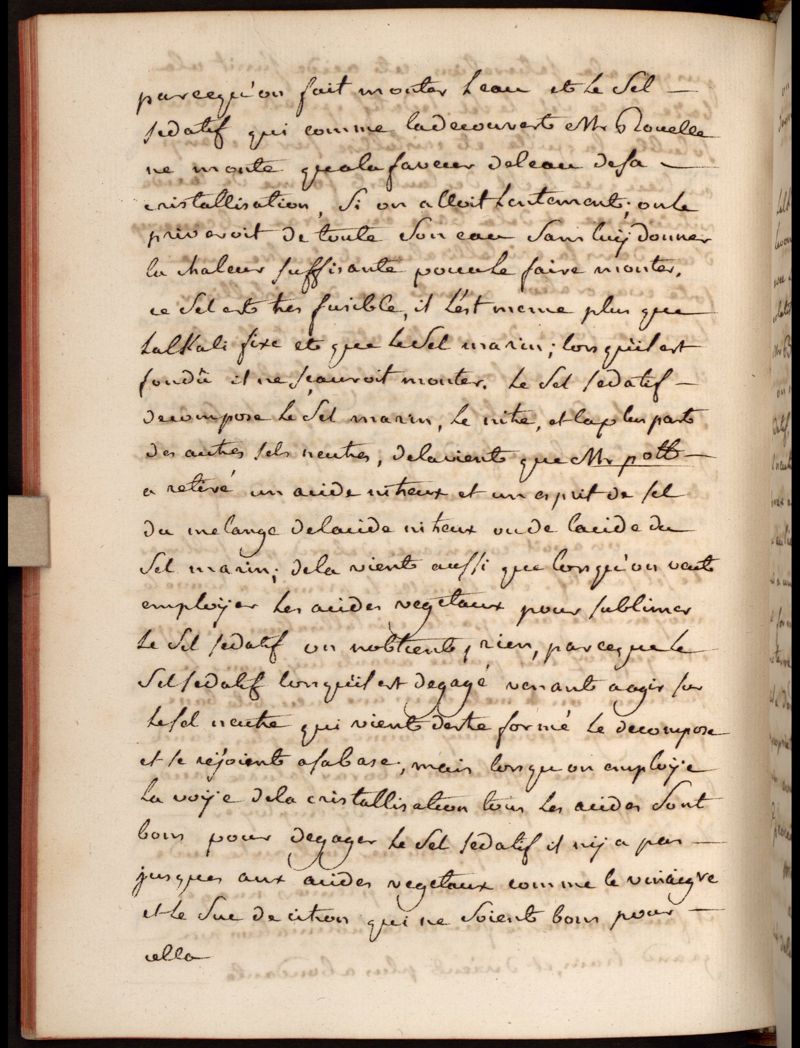 parcequ'on fait monter leau et le Sel —
sedatif qui comme ladecouvert Mr Rouelle
ne monte quala faveur deleau desa —
cristallisation, Si on alloit lentement, onle
priveroit de toute Son eau Sans luÿ donner
la chaleur suffisante pourle faire monter.
ce Sel est tres fusible, il l'est meme plus que
lalKali fixe et que le Sel marin; lorsquil est
fondû il ne sçauroit monter. Le Sel sedatif —
decompose le Sel marin, le nitre, et laplus part
des autres sels neutres, delavient que Mr pott —
a retiré un acide nitreux et un esprit de sel
du melange delacide nitreux ou de lacide du
Sel marin; dela vient aussi que lorsqu'on veut
emploÿer les acides vegetaux pour sublimer
le Sel sedatif on nobtient, rien, parceque le
Sel sedatif lorsquil est degagé venant a agir sur
le sel neutre qui vient destre formé le decompose
et se rejoient asabase, mais lorsquon emploÿe
la voÿe dela cristallisation tous les acides Sont
bons pour degager le Sel sedatif il nÿ a pas —
jusques aux acides vegetaux comme le vinaigre
et le Suc de citron qui ne Soient bons pour —
cella